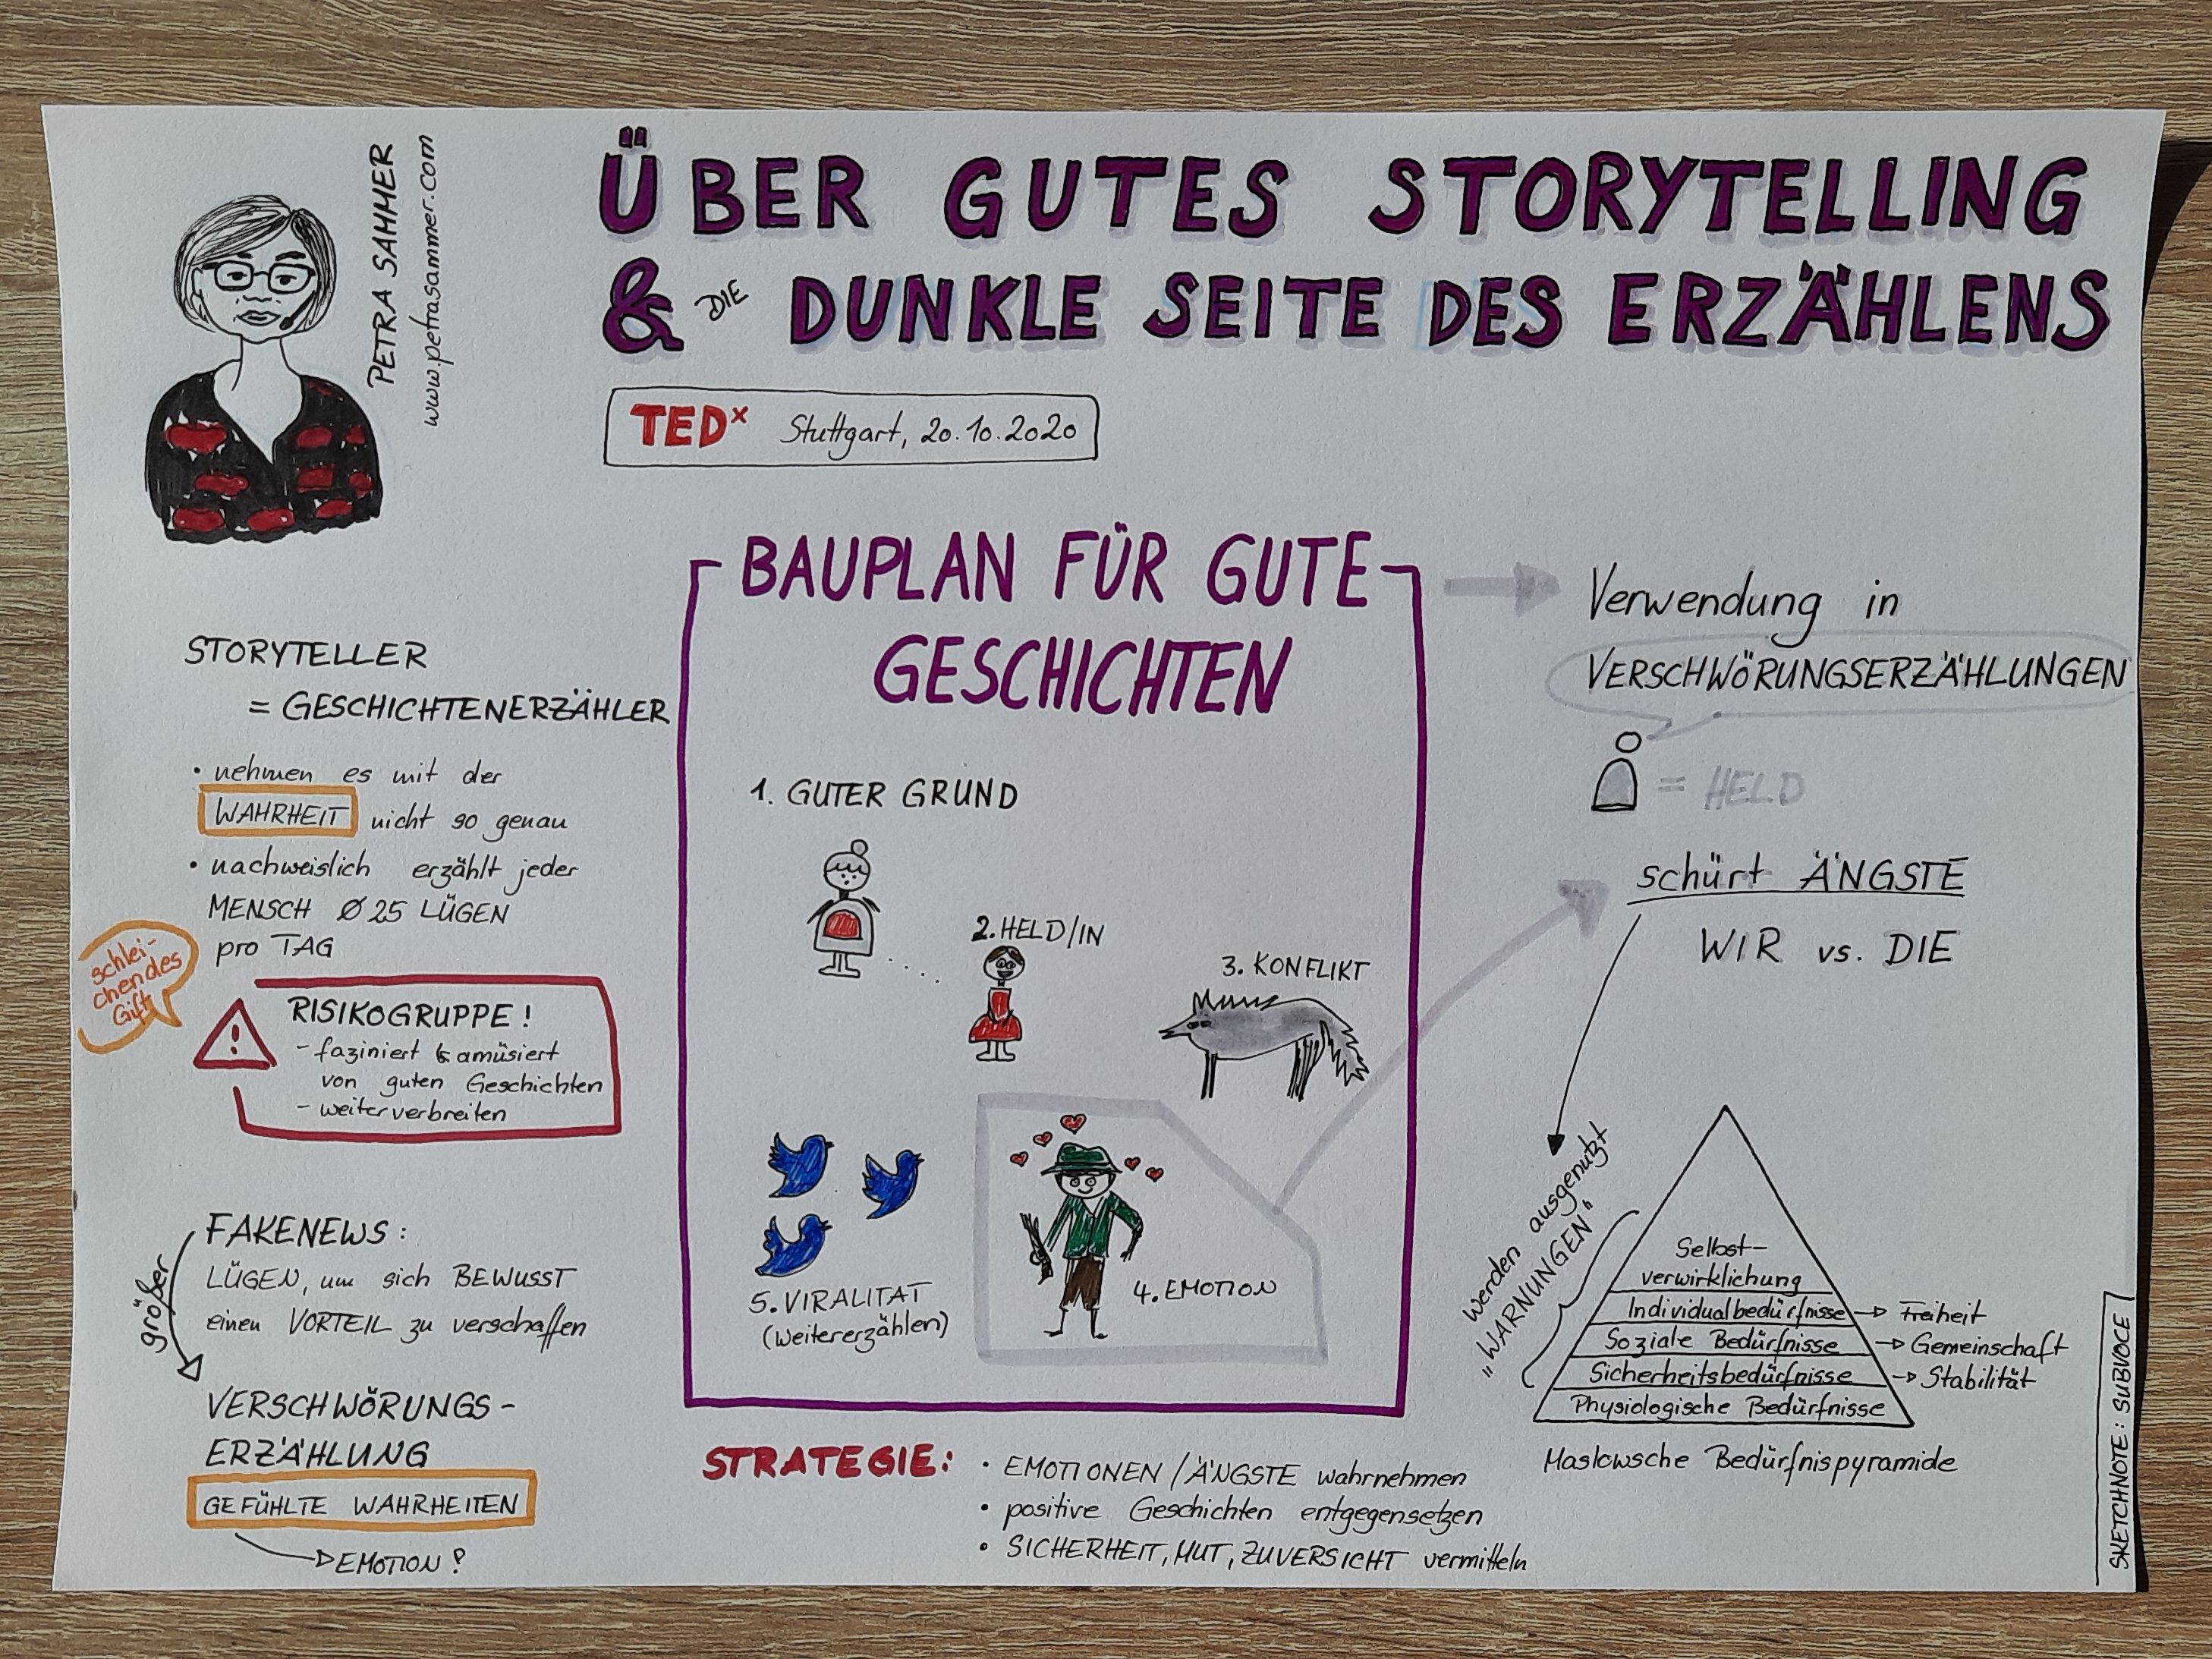 PETRA SAMMER
www.petrasammer.com
ÜBER GUTES STORYTELLING
& DIE DUNKLE SEITE DES ERZÄHLENS
TEDx Stuttgart, 20.10.2020
STORYTELLER
= GESCHICHTENERZÄHLER
• nehmen es mit der
WAHRHEIT nicht so genau
• nachweislich erzählt jeder
MENSCH Ø 25 LÜGEN
pro TAG
schlei-
chendes
Gift
RISIKOGRUPPE!
- faziniert & amüsiert
von guten Geschichten
- weiterverbreiten
FAKENEWS:
LÜGEN, um sich BEWUSST
einen VORTEIL zu verschaffen
größer
VERSCHWÖRUNGS-
ERZÄHLUNG
GEFÜHLTE WAHRHEITEN
EMOTION?
BAUPLAN FÜR GUTE
GESCHICHTEN
1. GUTER GRUND
2. HELD/IN
3. KONFLIKT
4. EMOTION
5. VIRALITÄT
(weitererzählen)
STRATEGIE:
• EMOTIONEN/ÄNGSTE wahrnehmen
• positive Geschichten entgegensetzen
• SICHERHEIT, MUT, ZUVERSICHT vermitteln
Verwendung in
VERSCHWÖRUNGSERZÄHLUNGEN
= HELD
schürt ÄNGSTE
WIR vs. DIE
werden ausgenutzt
„WARNUNGEN"
Selbst-
verwirklichung
Individualbedürfnisse → Freiheit
Soziale Bedürfnisse → Gemeinschaft
Sicherheitsbedürfnisse → Stabilität
Physiologische Bedürfnisse
Maslowsche Bedürfnispyramide
SKETCHNOTE: SUBVOCE